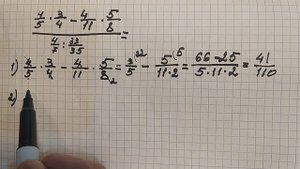 4/5 · 3/4 − 4/11 · 5/8
4/7 : 33/35 =
1) 4/5 · 3/4 − 4/11 · 5/8 2 = 3/5 (22 − 5/11·2 (5 = 66−25/5·11·2 = 41/110
2)